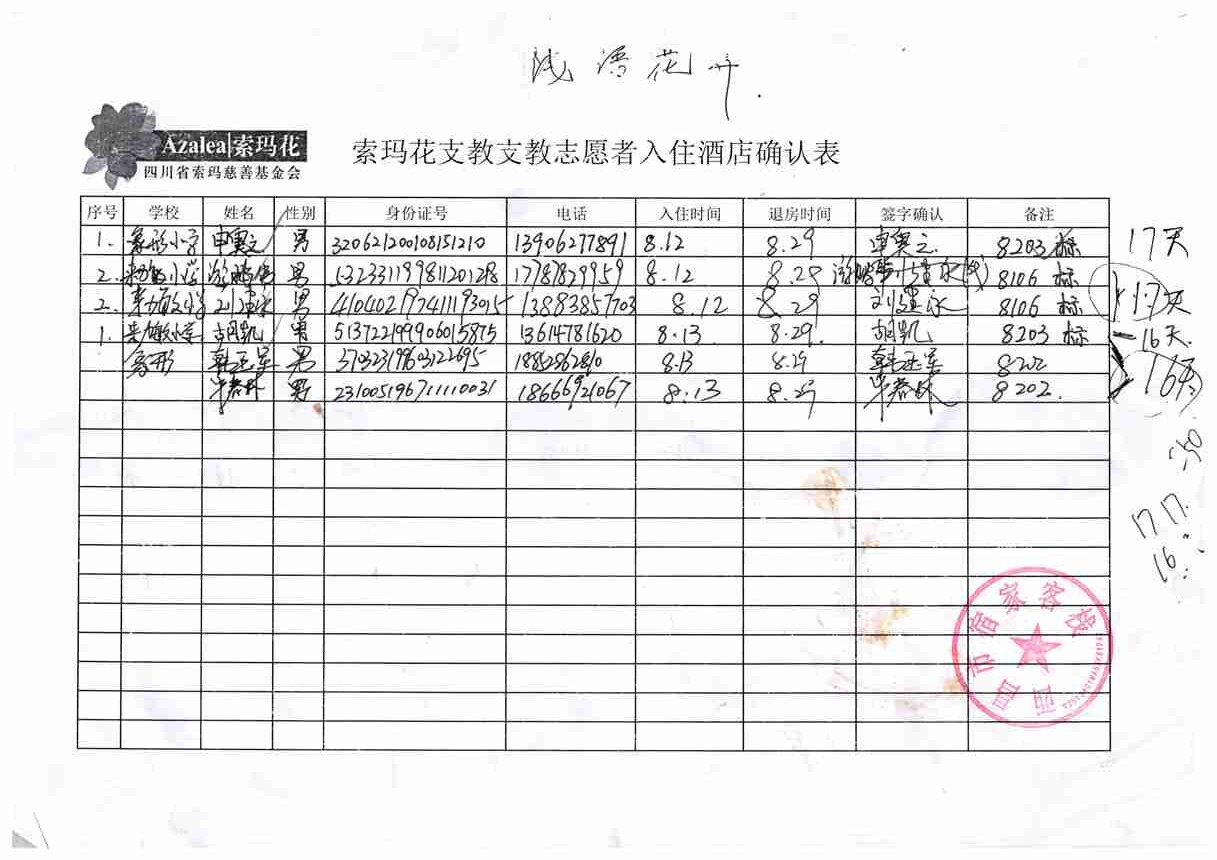 浅语花开.
Azalea|索玛花
四川省索玛慈善基金会
索玛花支教支教志愿者入住酒店确认表
序号 学校 姓名 性别 身份证号 电话 入住时间 退房时间 签字确认 备注
1. 象形小学 申奥之 男 320621200108151210 13906277891 8.12 8.29 申奥之 8203 标 17天
2. 小学 男 8.12 8.29 8106 标
2. 小学 刘建冰 男 410402197411193015 13883857703 8.12 8.29 刘建冰 8106 标 17天
1. 小学 胡凯 男 513722199906015875 13614781620 8.13 8.29. 胡凯 8203 标 16天.
象形 男 8.13 8.29 8202
男 231005196711110031 18666921067 8.13 8.29 8202. 16天
17 17.
16.
西昌市宿家客栈